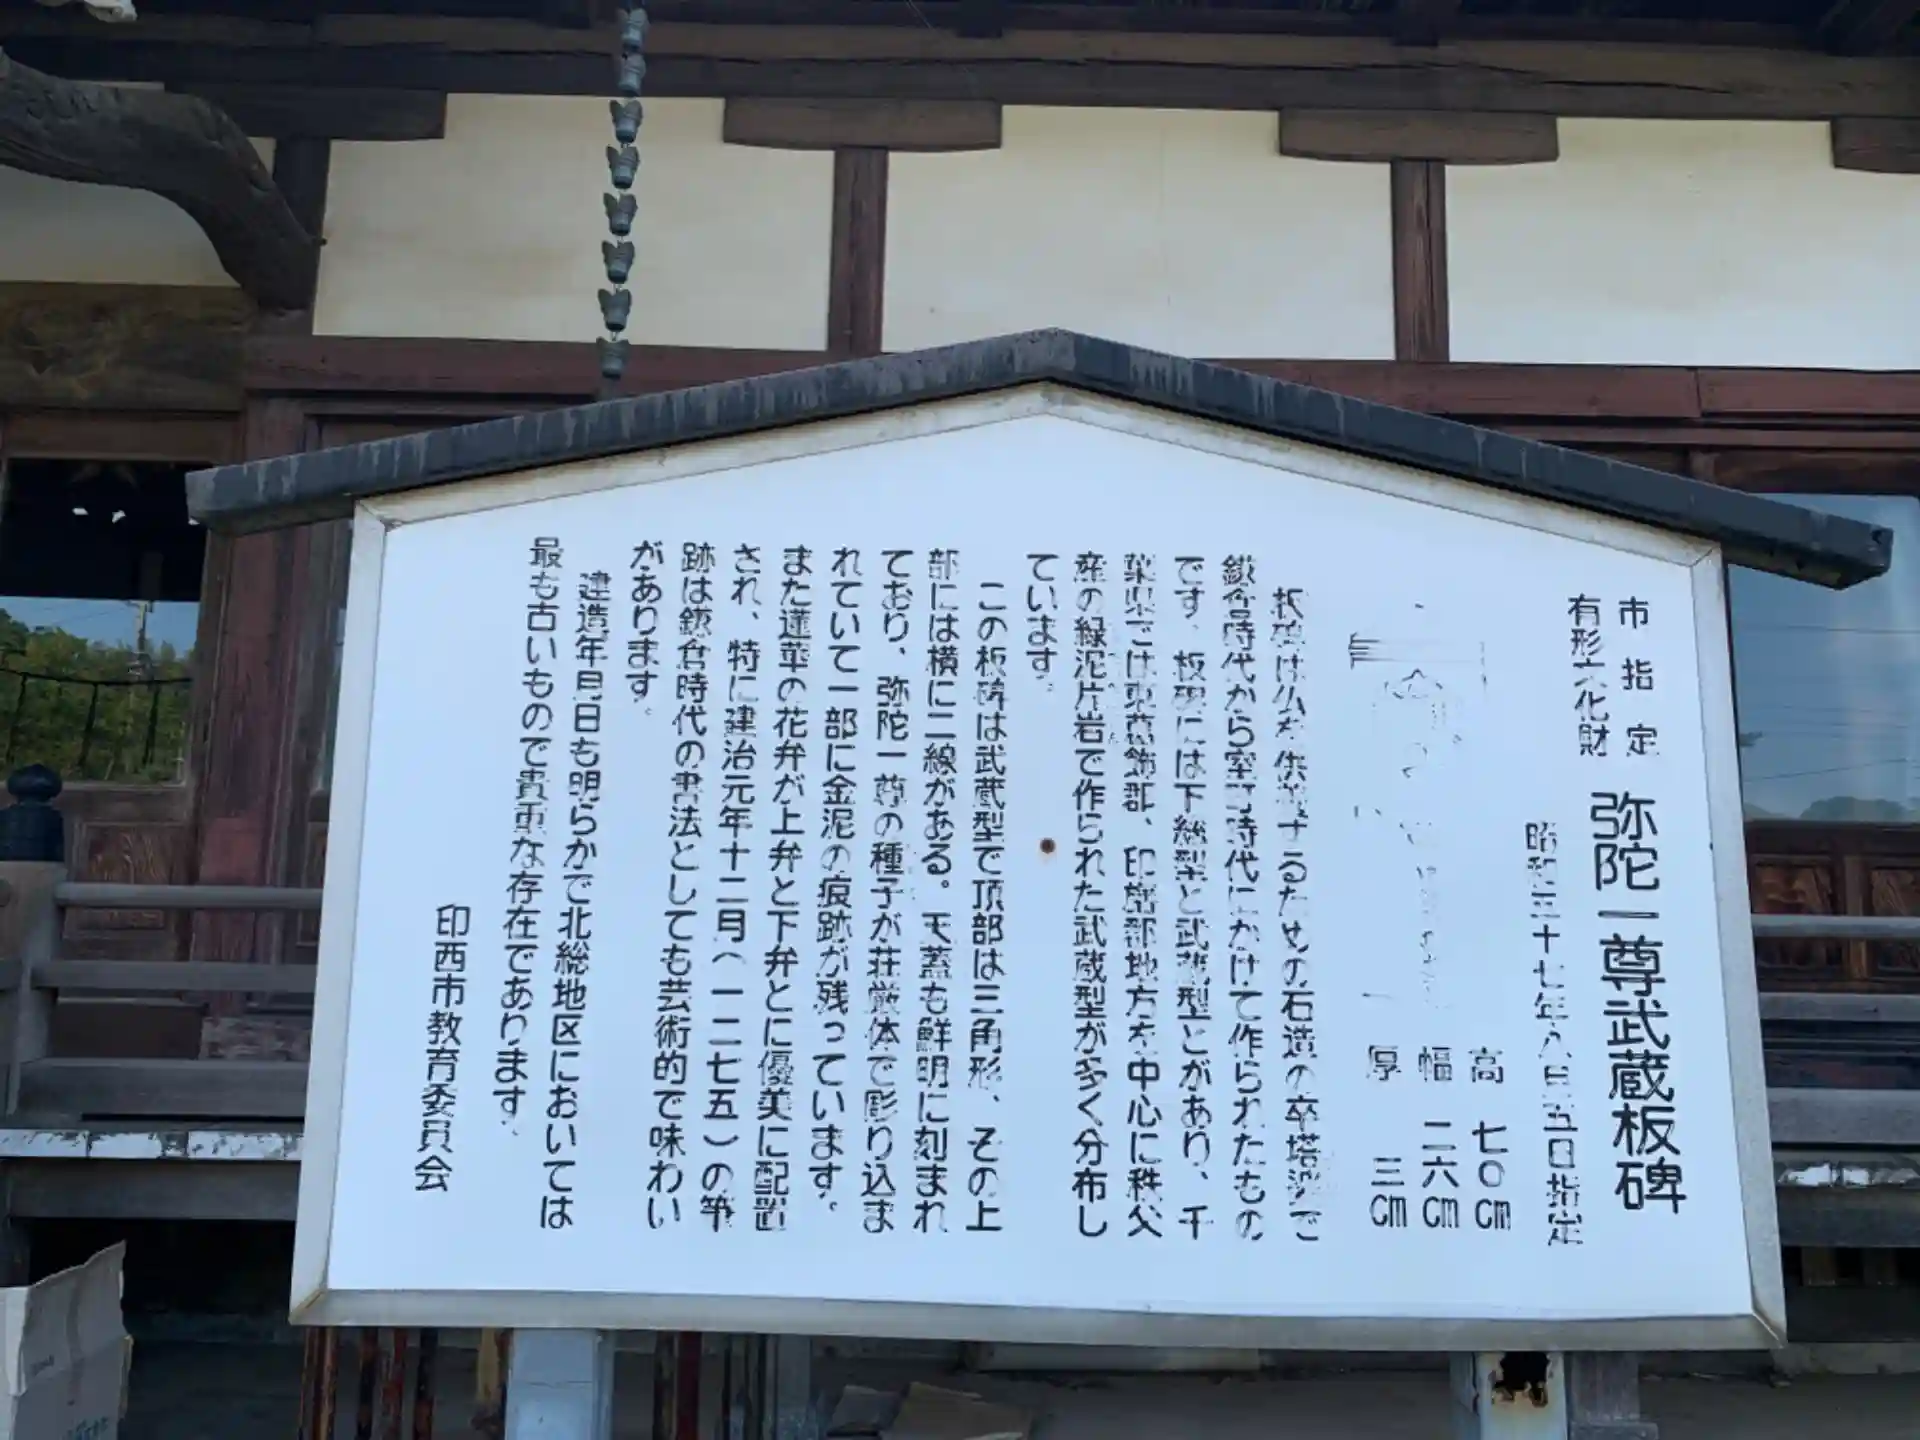 市指定
有形文化財
弥陀一尊武蔵板碑
昭和三十七年八月五日指定
高 七〇cm
幅 二六cm
厚 三cm
板碑は仏を供養するための石造の卒塔婆で
鎌倉時代から室町時代にかけて作られたもの
です。板碑には下総型と武蔵型とがあり、千
葉県では東葛飾郡、印旛郡地方を中心に秩父
産の緑泥片岩で作られた武蔵型が多く分布し
ています。
この板碑は武蔵型で頂部は三角形、その上
部には横に二線がある。天蓋も鮮明に刻まれ
ており、弥陀一尊の種子が荘厳体で彫り込ま
れていて一部に金泥の痕跡が残っています。
また蓮華の花弁が上弁と下弁とに優美に配置
され、特に建治元年十二月(一二七五)の筆
跡は鎌倉時代の書法としても芸術的で味わい
があります。
建造年月日も明らかで北総地区においては
最も古いもので貴重な存在であります。
印西市教育委員会